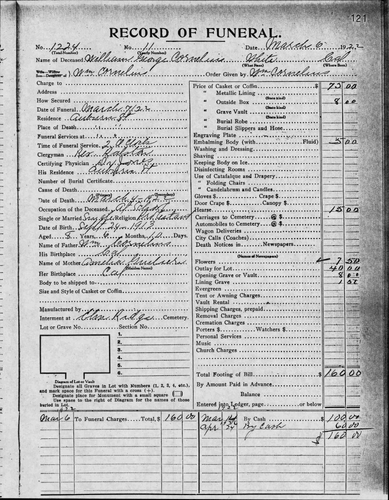 121
RECORD OF FUNERAL.
No. 1224 No. 11 Date March 6 1922
(Total Number) (Yearly Number)
Name of Deceased William George Cornelius White Cal
(What Race) (Where Born)
Wm Cornelius Order Given by Wm Cornelius
Charge to
Address
How Secured
Date of Funeral March 7/22
Residence Auburn St
Place of Death
Funeral Services at
Time of Funeral Service
Clergyman Rev.
Certifying Physician Dr Jones
His Residence Auburn St
Number of Burial Certificate
Cause of Death
Date of Death March 4 1922
Occupation of the Deceased At School
Single or Married Single Religion Protestant
Date of Birth Sept 24 1912
Aged Years Months Days
Name of Father Wm Cornelius
His Birthplace Cal
Name of Mother Amelia
Her Birthplace Cal
Body to be shipped to
Size and Style of Casket or Coffin
Manufactured by
Interment at Glen Ridge Cemetery.
Lot or Grave No. Section No.
Diagram of Lot or Vault
Designate all Graves in Lot with Numbers (1, 2, 3, 4, etc.),
and mark space for this Funeral with a cross (+).
Designate place for Monument with a small square
Use space to the right of Diagram for the names of those
buried in Lot.
Price of Casket or Coffin $ 75 00
" Metallic Lining
" Outside Box 8 00
" Grave Vault
" Burial Robe
" Burial Slippers and Hose
Engraving Plate
Embalming Body (with Fluid) 5 00
Washing and Dressing
Shaving
Keeping Body on Ice
Disinfecting Rooms
Use of Catafalque and Drapery
" Folding Chairs
" Candelabrum and Candles
Gloves $ Crape $
Hearse 15 00
Carriages to Cemetery @ $
Automobiles to Cemetery @ $
Wagon Deliveries
City Calls (Coaches)
Death Notices in Newspapers
(Names of Newspapers)
Flowers 7 50
Outlay for Lot 40 00
Opening Grave or Vault 8 00
Lining Grave 1 50
Evergreen
Tent or Awning Charges
Vault Rental
Shipping Charges, prepaid
Removal Charges
Cremation Charges
Porters $ Watchers $
Personal Services
Music
Church Charges
Total Footing of Bill $ 160 00
By Amount Paid in Advance
Balance
Entered into Ledger, page or below
1922
Mar 6 To Funeral Charges Total $ 160 00
Mar By Cash 100 00
Apr By Cash 60 00
160 00